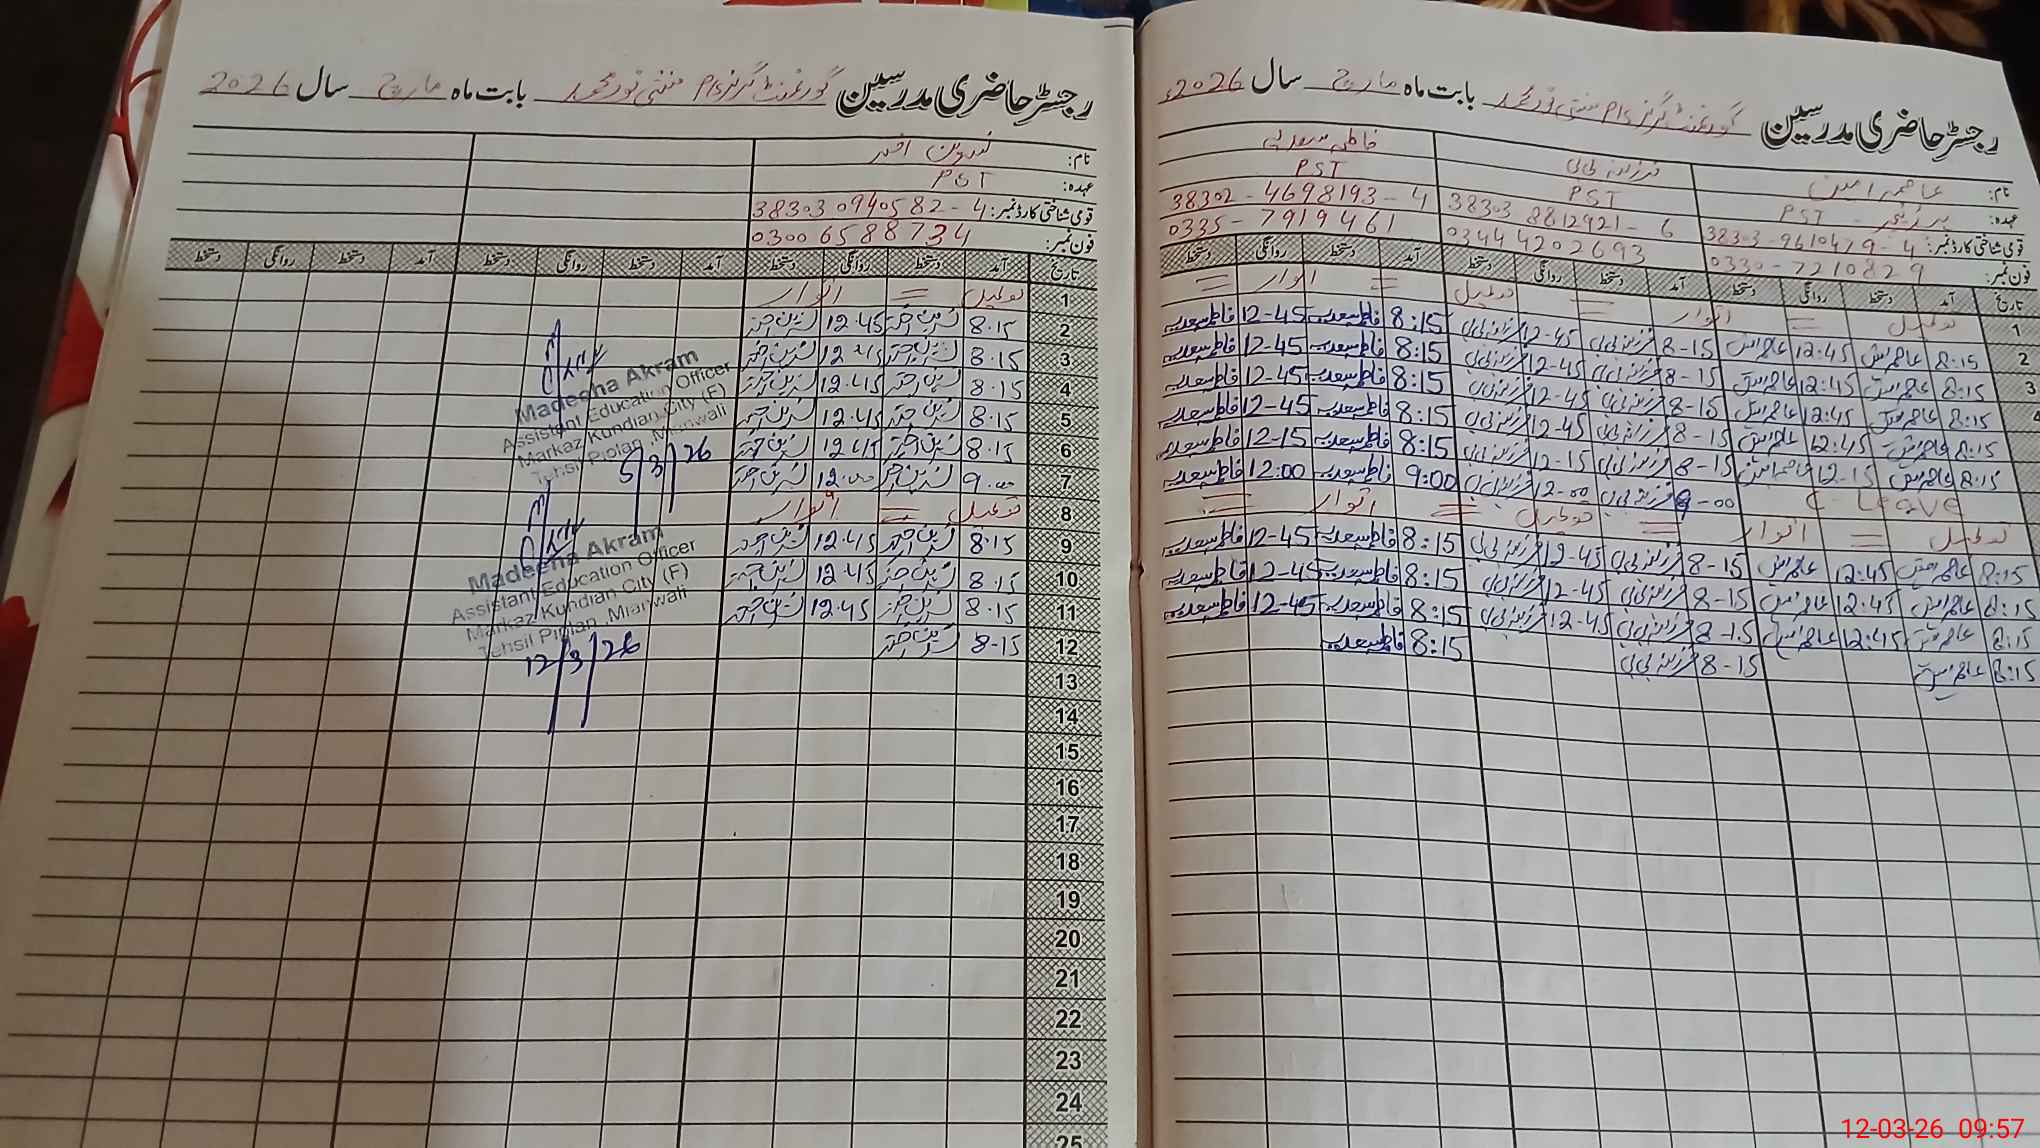 رجسٹر حاضری مدرسین گورنمنٹ گرلز P/S بابت ماہ مارچ سال 2026
نام: عاصمہ امین فرزانہ بی بی فاطمہ سعدیہ
عہدہ: PST PST PST
قومی شناختی کارڈ نمبر: 38303-9610479-4 38303 8812921-6 38302-4698193-4
فون نمبر: 0330-7210829 0344 4202693 0335-7919461
تاریخ آمد دستخط روانگی دستخط آمد دستخط روانگی دستخط آمد دستخط روانگی دستخط
1 تعطیل = اتوار = تعطیل = اتوار =
2 8:15 12:45 8-15 فرزانہ بی بی 12-45 فرزانہ بی بی 8:15 فاطمہ سعدیہ 12-45 فاطمہ سعدیہ
3 8:15 12:45 8-15 فرزانہ بی بی 12-45 فرزانہ بی بی 8:15 فاطمہ سعدیہ 12-45 فاطمہ سعدیہ
4 8:15 12:45 8-15 فرزانہ بی بی 12-45 فرزانہ بی بی 8:15 فاطمہ سعدیہ 12-45 فاطمہ سعدیہ
8:15 12:45 8-15 فرزانہ بی بی 12-45 فرزانہ بی بی 8:15 فاطمہ سعدیہ 12-45 فاطمہ سعدیہ
8:15 12-15 8-15 فرزانہ بی بی 12-15 فرزانہ بی بی 8:15 فاطمہ سعدیہ 12-15 فاطمہ سعدیہ
C-Leave 9-00 فرزانہ بی بی 12-00 فرزانہ بی بی 9:00 فاطمہ سعدیہ 12:00 فاطمہ سعدیہ
تعطیل = اتوار = تعطیل = اتوار =
8:15 12:45 8-15 فرزانہ بی بی 12-45 فرزانہ بی بی 8:15 فاطمہ سعدیہ 12-45 فاطمہ سعدیہ
8:15 12:45 8-15 فرزانہ بی بی 12-45 فرزانہ بی بی 8:15 فاطمہ سعدیہ 12-45 فاطمہ سعدیہ
8:15 12:45 8-15 فرزانہ بی بی 12-45 فرزانہ بی بی 8:15 فاطمہ سعدیہ 12-45 فاطمہ سعدیہ
8:15 8-15 فرزانہ بی بی 8:15 فاطمہ سعدیہ
رجسٹر حاضری مدرسین گورنمنٹ گرلز P/S بابت ماہ مارچ سال 2026
نام: نسرین اختر
عہدہ: PST
قومی شناختی کارڈ نمبر: 38303 0940582-4
فون نمبر: 0300 6588734
تاریخ آمد دستخط روانگی دستخط آمد دستخط روانگی دستخط آمد دستخط روانگی دستخط
1 تعطیل = اتوار
2 8.15 نسرین اختر 12.45 نسرین اختر
3 8.15 نسرین اختر 12.45 نسرین اختر
4 8.15 نسرین اختر 12.45 نسرین اختر
5 8.15 نسرین اختر 12.45 نسرین اختر
6 8.15 نسرین اختر 12.15 نسرین اختر
7 9.00 نسرین اختر 12.00 نسرین اختر
8 تعطیل = اتوار
9 8.15 نسرین اختر 12.45 نسرین اختر
10 8.15 نسرین اختر 12.45 نسرین اختر
11 8.15 نسرین اختر 12.45 نسرین اختر
12 8-15 نسرین اختر
13
14
15
16
17
18
19
20
21
22
23
24
25
Madeeha Akram
Assistant Education Officer
Markaz Kundian City (F)
Tehsil Piplan, Mianwali
5/3/26
Madeeha Akram
Assistant Education Officer
Markaz Kundian City (F)
Tehsil Piplan, Mianwali
12/3/26
12-03-26 09:57